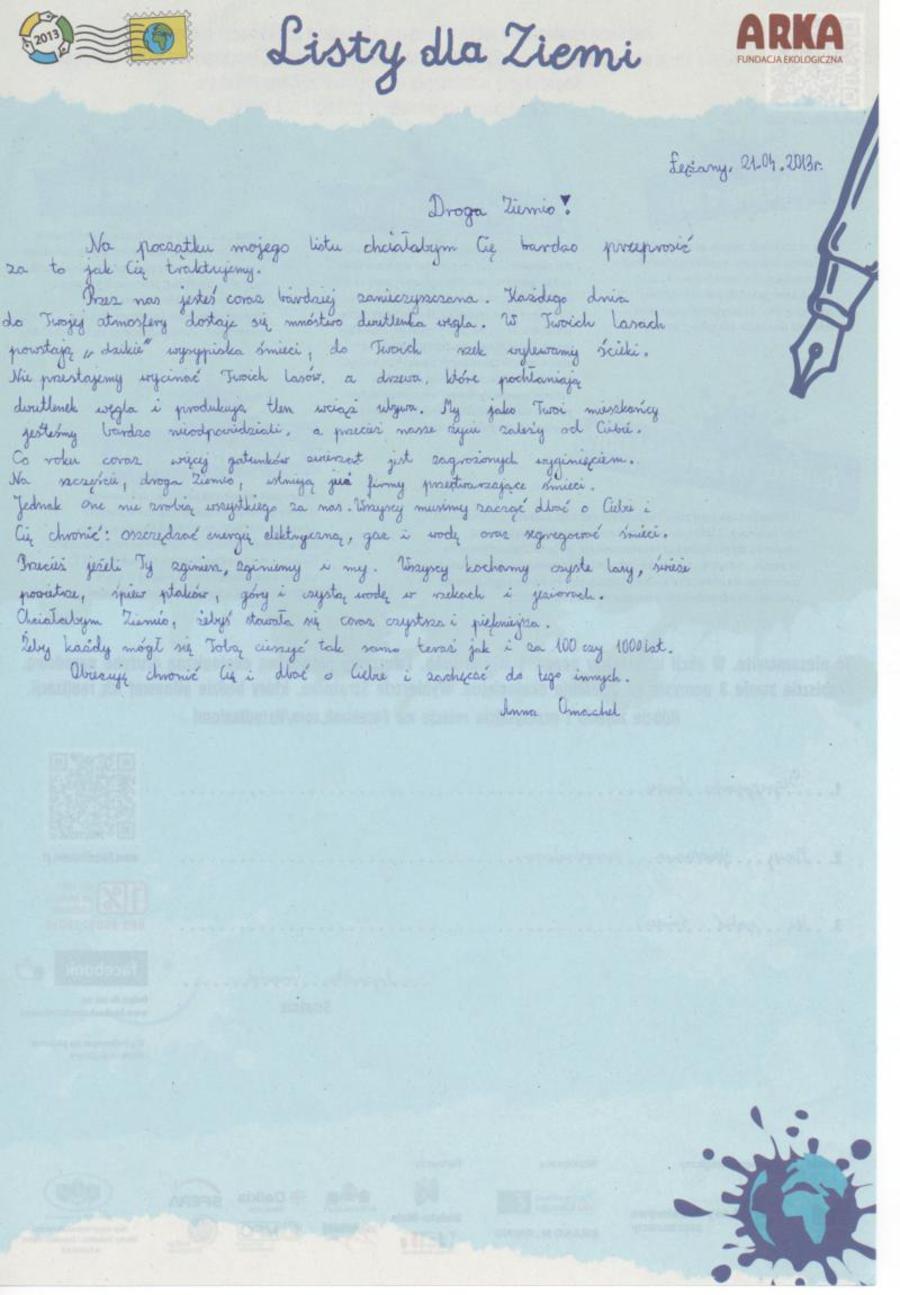 2013
Listy dla Ziemi
ARKA
FUNDACJA EKOLOGICZNA
Łężany, 21.04.2013r.
Droga Ziemio!
Na początku mojego listu chciałabym Cię bardzo przeprosić
za to jak Cię traktujemy.
Przez nas jesteś coraz bardziej zanieczyszczana. Każdego dnia
do Twojej atmosfery dostaje się mnóstwo dwutlenku węgla. W Twoich Lasach
powstają „dzikie" wysypiska śmieci, do Twoich rzek wylewamy ścieki.
Nie przestajemy wycinać Twoich Lasów, a drzewa, które pochłaniają
dwutlenek węgla i produkują tlen wciąż ubywa. My jako Twoi mieszkańcy
jesteśmy bardzo nieodpowiedziali, a przecież nasze życie zależy od Ciebie.
Co roku coraz więcej gatunków zwierząt jest zagrożonych wyginięciem.
Na szczęście, droga Ziemio, istnieją już firmy przetwarzające śmieci.
Jednak one nie zrobią wszystkiego za nas. Wszyscy musimy zacząć dbać o Ciebie i
Cię chronić: oszczędzać energię elektryczną, gaz i wodę oraz segregować śmieci.
Przecież jeżeli Ty zginiesz, zginiemy i my. Wszyscy kochamy czyste lasy, świeże
powietrze, śpiew ptaków, góry i czystą wodę w rzekach i jeziorach.
Chciałabym Ziemio, żebyś stawała się coraz czystsza i piękniejsza.
Żeby każdy mógł się Tobą cieszyć tak samo teraz jak i za 100 czy 1000 lat.
Obiecuję chronić Cię i dbać o Ciebie i zachęcać do tego innych.
Anna